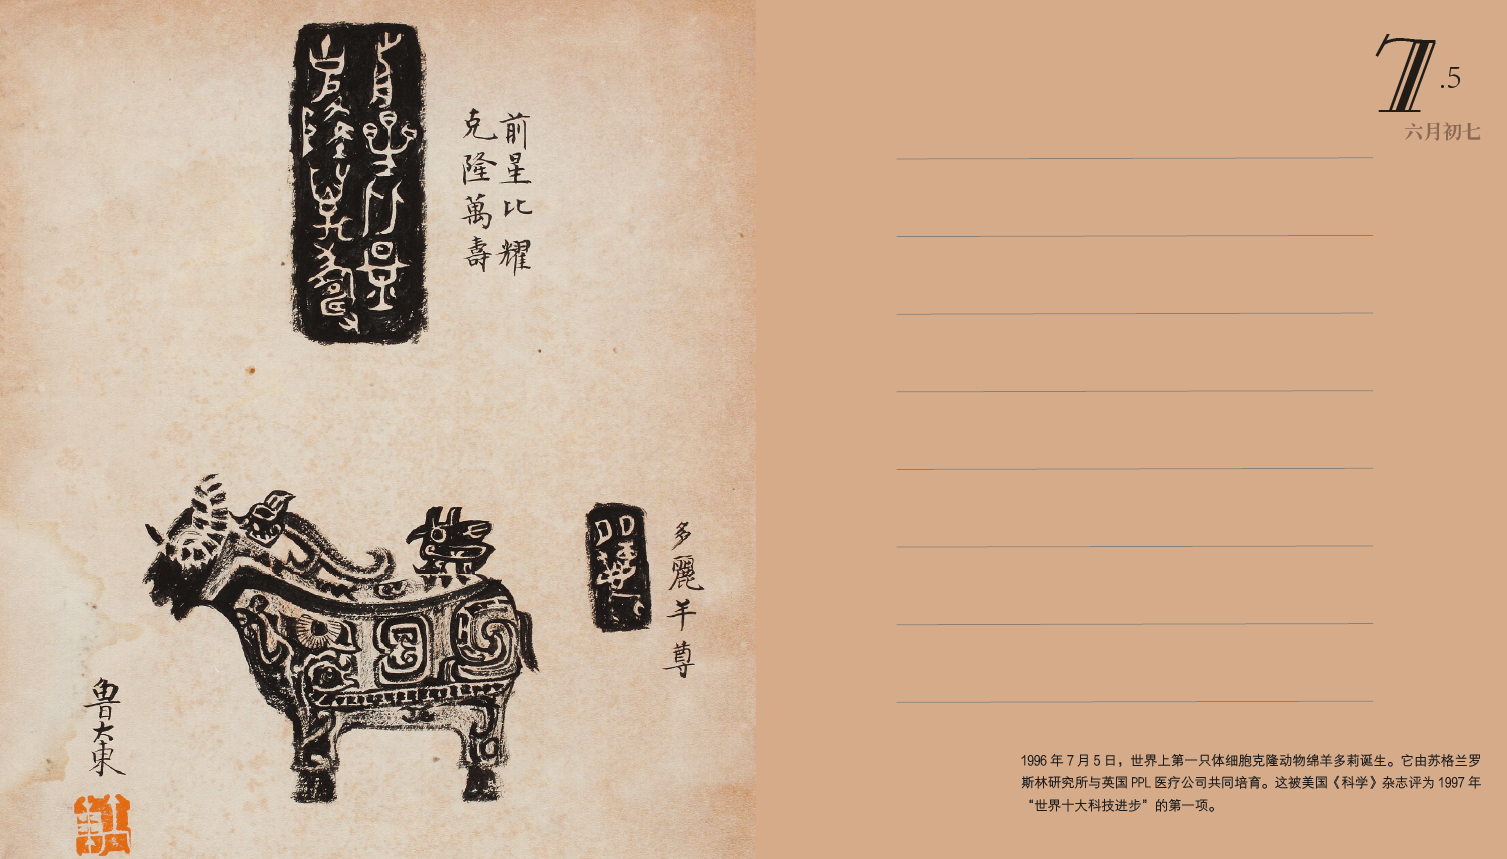 前星比耀
克隆萬壽
多麗羊尊
魯大東
7.5
六月初七
1996 年 7 月 5 日，世界上第一只体细胞克隆动物绵羊多莉诞生。它由苏格兰罗
斯林研究所与英国 PPL 医疗公司共同培育。这被美国《科学》杂志评为 1997 年
“世界十大科技进步”的第一项。